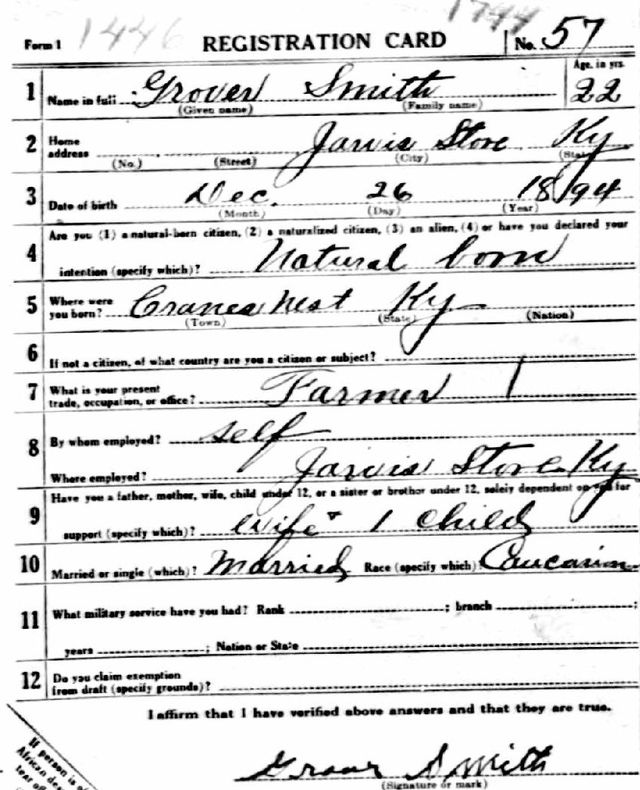 1446 1744
Form 1 REGISTRATION CARD No. 57
1 Name in full Grover Smith Age, in yrs. 22
(Given name) (Family name)
2 Home address Jarvis Store Ky
(No.) (Street) (City) (State)
3 Date of birth Dec. 26 1894
(Month) (Day) (Year)
4 Are you (1) a natural-born citizen, (2) a naturalized citizen, (3) an alien, (4) or have you declared your
intention (specify which)? Natural born
5 Where were you born? Cranes Nest Ky
(Town) (State) (Nation)
6 If not a citizen, of what country are you a citizen or subject?
7 What is your present trade, occupation, or office? Farmer
8 By whom employed? self
Where employed? Jarvis Store Ky
9 Have you a father, mother, wife, child under 12, or a sister or brother under 12, solely dependent on you for
support (specify which)? wife + 1 child
10 Married or single (which)? Married Race (specify which)? Caucasian
11 What military service have you had? Rank ; branch ;
years ; Nation or State
12 Do you claim exemption
from draft (specify grounds)?
I affirm that I have verified above answers and that they are true.
Smith
(Signature or mark)
If person is of
African